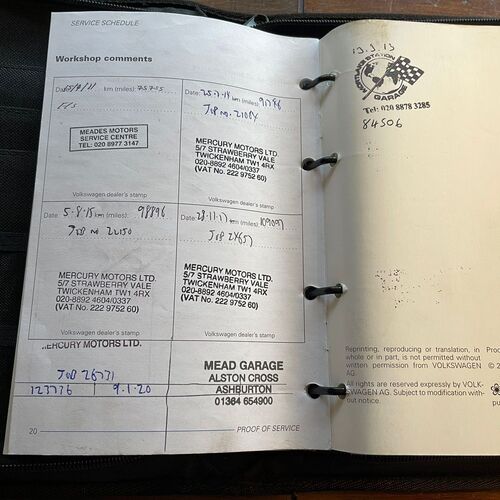 SERVICE SCHEDULE
Workshop comments
Date: km (miles): 75715
MEADES MOTORS
SERVICE CENTRE
TEL: 020 8977 3147
Volkswagen dealer's stamp
Date: 25.7.14 km (miles): 91786
Job no. 21084
MERCURY MOTORS LTD.
5/7 STRAWBERRY VALE
TWICKENHAM TW1 4RX
020-8892 4604/0337
(VAT No. 222 9752 60)
Volkswagen dealer's stamp
Date: 5-8-15 km (miles): 98896
Job no. 22150
MERCURY MOTORS LTD.
5/7 STRAWBERRY VALE
TWICKENHAM TW1 4RX
020-8892 4604/0337
(VAT No. 222 9752 60)
Volkswagen dealer's stamp
Date: 28-11-17 km (miles): 109097
Job 24657
MERCURY MOTORS LTD.
5/7 STRAWBERRY VALE
TWICKENHAM TW1 4RX
020-8892 4604/0337
(VAT No. 222 9752 60)
Volkswagen dealer's stamp
MERCURY MOTORS LTD.
Job 26731
123776 9.1.20
MEAD GARAGE
ALSTON CROSS
ASHBURTON
01364 654900
20
PROOF OF SERVICE
19.3.13
STATION
GARAGE
Tel: 020 8878 3285
84506
Reprinting, reproducing or translation, in
whole or in part, is not permitted without
written permission from VOLKSWAGEN
AG
All rights are reserved expressly by VOLK-
SWAGEN AG. Subject to modification with-
out notice.
Prod
© 2
pu